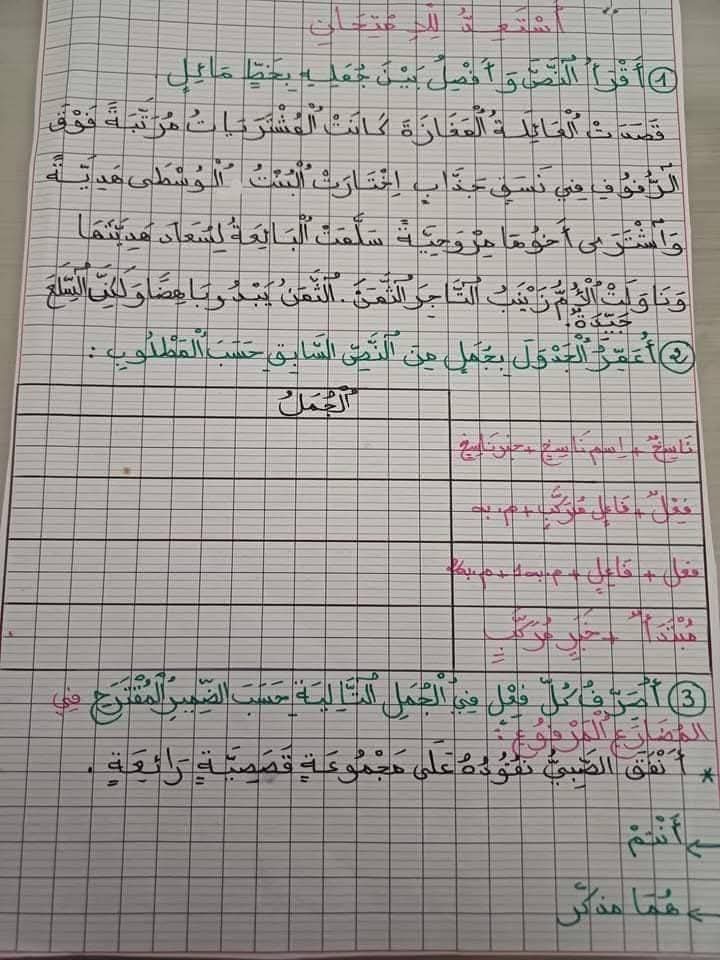 أَسْتَعِدُّ لِلْاِمْتِحَانِ
① أَقْرَأُ النَّصَّ وَ أَفْصِلُ بَيْنَ جُمَلِهِ بِخَطٍّ مَائِلٍ.
قَصَدَتْ الْعَائِلَةُ الْمَغَازَةَ كَانَتْ الْمُشْتَرَيَاتُ مُرَتَّبَةً فَوْقَ
الرُّفُوفِ فِي نَسَقٍ جَذَّابٍ اِخْتَارَتْ الْبِنْتُ الْوُسْطَى هَدِيَّةً
وَاشْتَرَى أَخُوهَا مِرْوَحِيَّةً سَلَّمَتْ الْبَائِعَةُ لِسُعَادَ هَدِيَّتَهَا
وَنَاوَلَتْ الْأُمُّ زَيْنَبُ التَّاجِرَ الثَّمَنَ. الثَّمَنُ يَبْدُو بَاهِضًا وَلَكِنَّ السِّلَعَ
جَيِّدَةٌ.
② أُعَمِّرُ الْجَدْوَلَ بِجُمَلٍ مِنَ النَّصِّ السَّابِقِ حَسَبَ الْمَطْلُوبِ :
الْجُمَلُ
نَاسِخٌ + اِسم نَاسِخ + خبر نَاسِخ
فِعْلٌ + فَاعِلٍ مُرَكَّبٍ + م. به
فعل + فَاعِلٍ + م. به1 + م. به2
مُبْتَدَأٌ + خَبَرٍ مُرَكَّبٍ
③ أُصَرِّفُ كُلَّ فِعْلٍ فِي الْجُمَلِ التَّالِيَةِ حَسَبَ الضَّمِيرِ الْمُقْتَرَحِ فِي
الْمُضَارِعِ الْمَرْفُوعِ :
* أَنْفَقَ الصَّبِيُّ نُقُودَهُ عَلَى مَجْمُوعَةٍ قَصَصِيَّةٍ رَائِعَةٍ.
← أَنْتُمْ
← هُمَا مذكّر